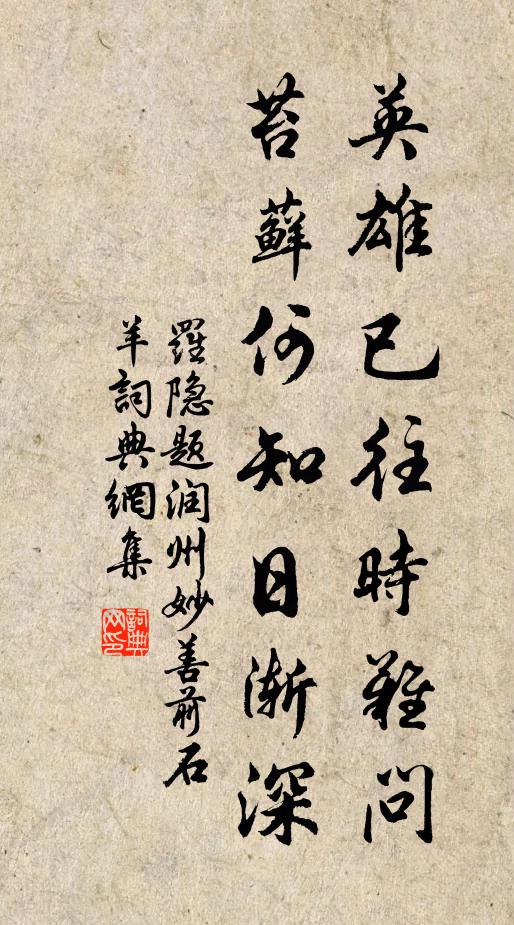 英雄已往時難問
苔蘚何知日漸深
羅隐题润州妙善前石
羊詞典網集
詞典网印